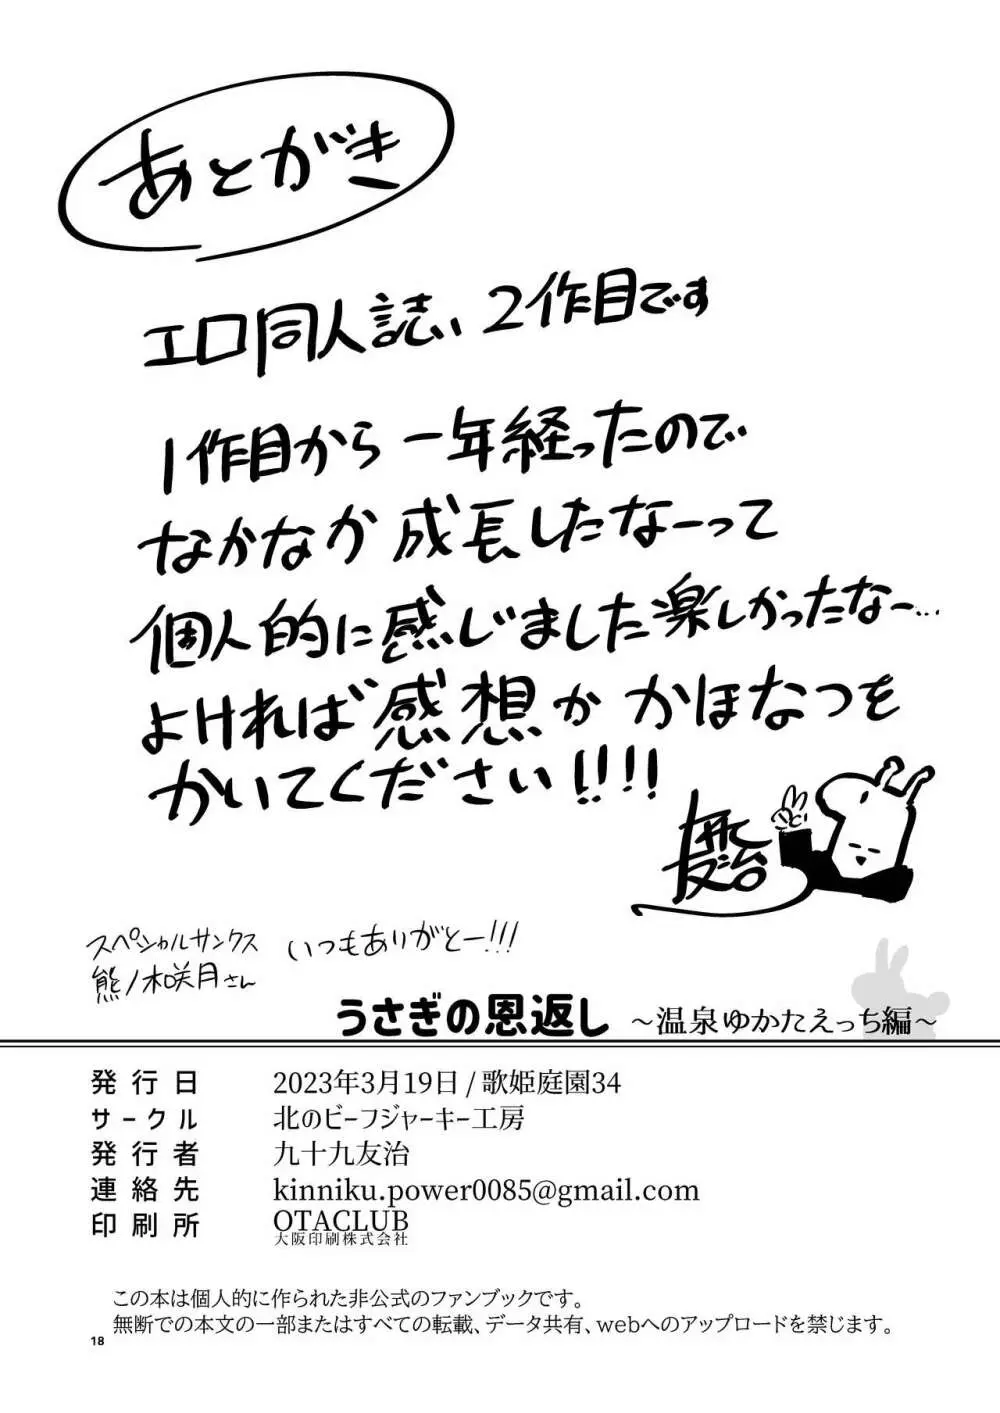 あとがき
エロ同人誌、2作目です
1作目から一年経ったので
なかなか成長したなーって
個人的に感じました楽しかったなー…
よければ感想か かほなつを
かいてください!!!!
友治
スペシャルサンクス
熊ノ木咲月さん
いつもありがとー!!!
うさぎの恩返し ～温泉ゆかたえっち編～
発行日 2023年3月19日 / 歌姫庭園34
サークル 北のビーフジャーキー工房
発行者 九十九友治
連絡先 kinniku.power0085@gmail.com
印刷所 OTACLUB
大阪印刷株式会社
この本は個人的に作られた非公式のファンブックです。
無断での本文の一部またはすべての転載、データ共有、webへのアップロードを禁じます。
18